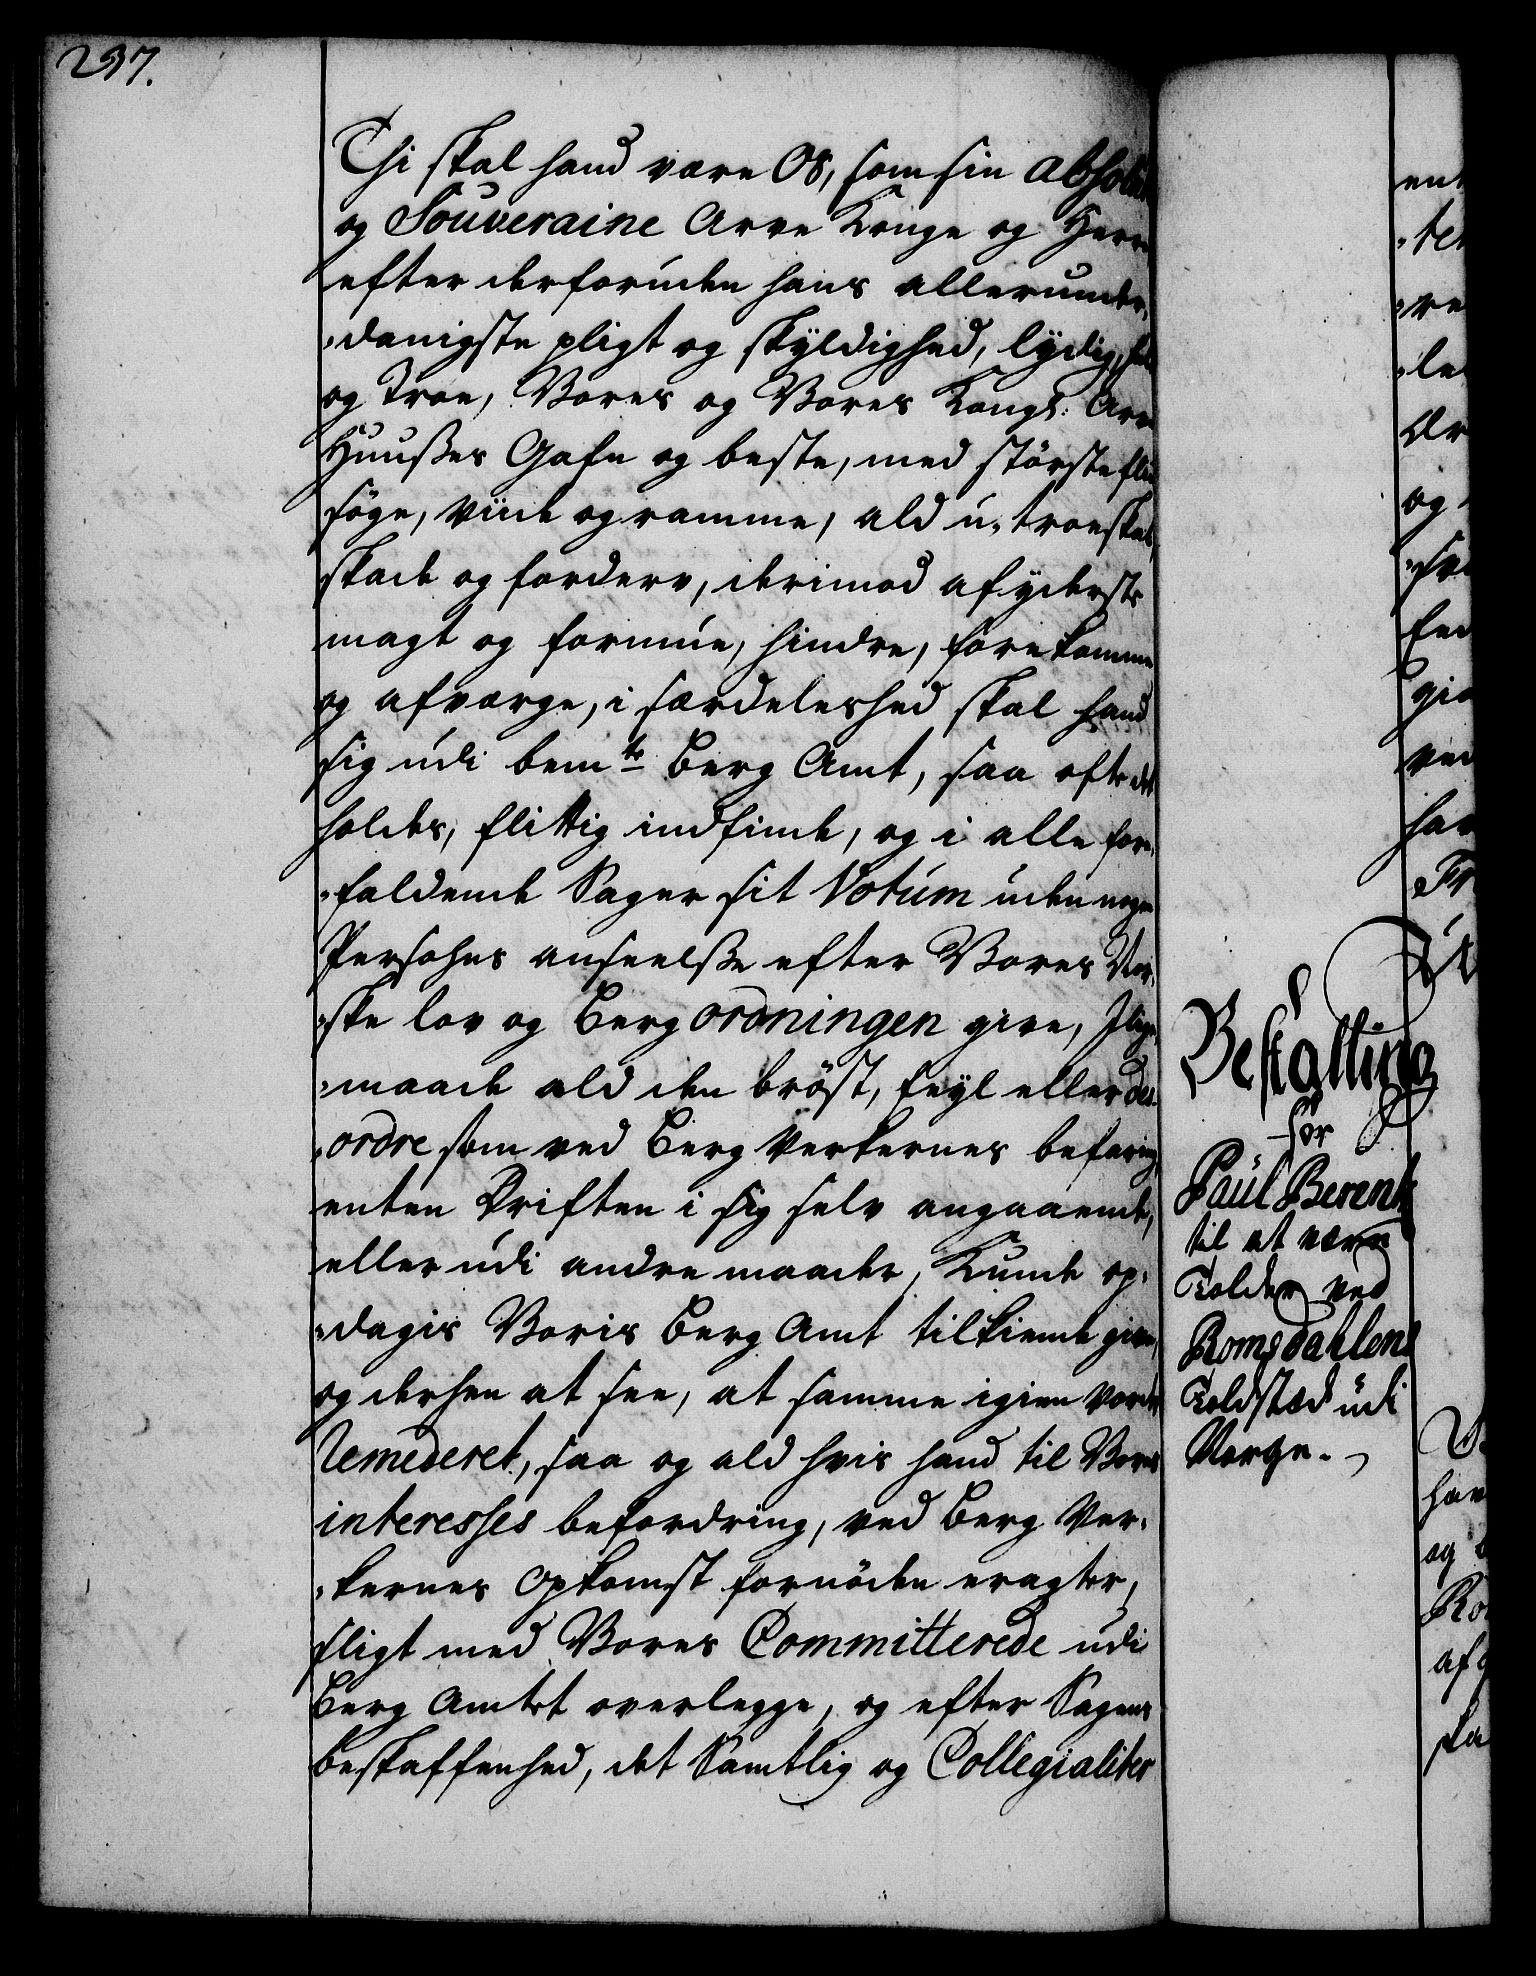 297.
Thi skal hand være Os, som sin absolut
og Souveraine Arve Konge og Herre
efter derforuden hans allerunder-
-danigste pligt og skyldighed, lydig, huld
og Troe, Vores og Vores Kongl: Arve
Huuses Gafn og beste, med störste fliid
söge, viide og ramme, ald u-troeskab,
skade og forderv, derimod af yderste
magt og formue, hindre, forekomme
og afværge, i særdeleshed skal hand
sig udi bemte Berg Amt, saa ofte det
holdes, flittig indfinde, og i alle fore-
-faldende Sager sit Votum uden nogen
Persohns anseelse efter Vores Nor-
-ske lov og Bergordningen give, Ilige-
-maade ald den bröst, feyl eller des-
-ordre som ved Berg Verkernes befaring
enten Driften i sig selv angaaende,
eller udi andre maader, Kunde op-
-dagis Voris Berg Amt tilkiende give,
og derhen at see, at samme igien vorder
Remederet, saa og ald hvis hand til Vores
interesses befordring, ved Berg Ver-
-kernes opkomst fornöden eragter,
sligt med Vores Committerede udi
Berg Amtet overlegge, og efter Sagens
beskaffenhed, det Samtlig og Collegialiter
Bestalling
for
Paul Berent
til at være
Tolder ved
Romsdahlens
Toldsted udi
Norge.